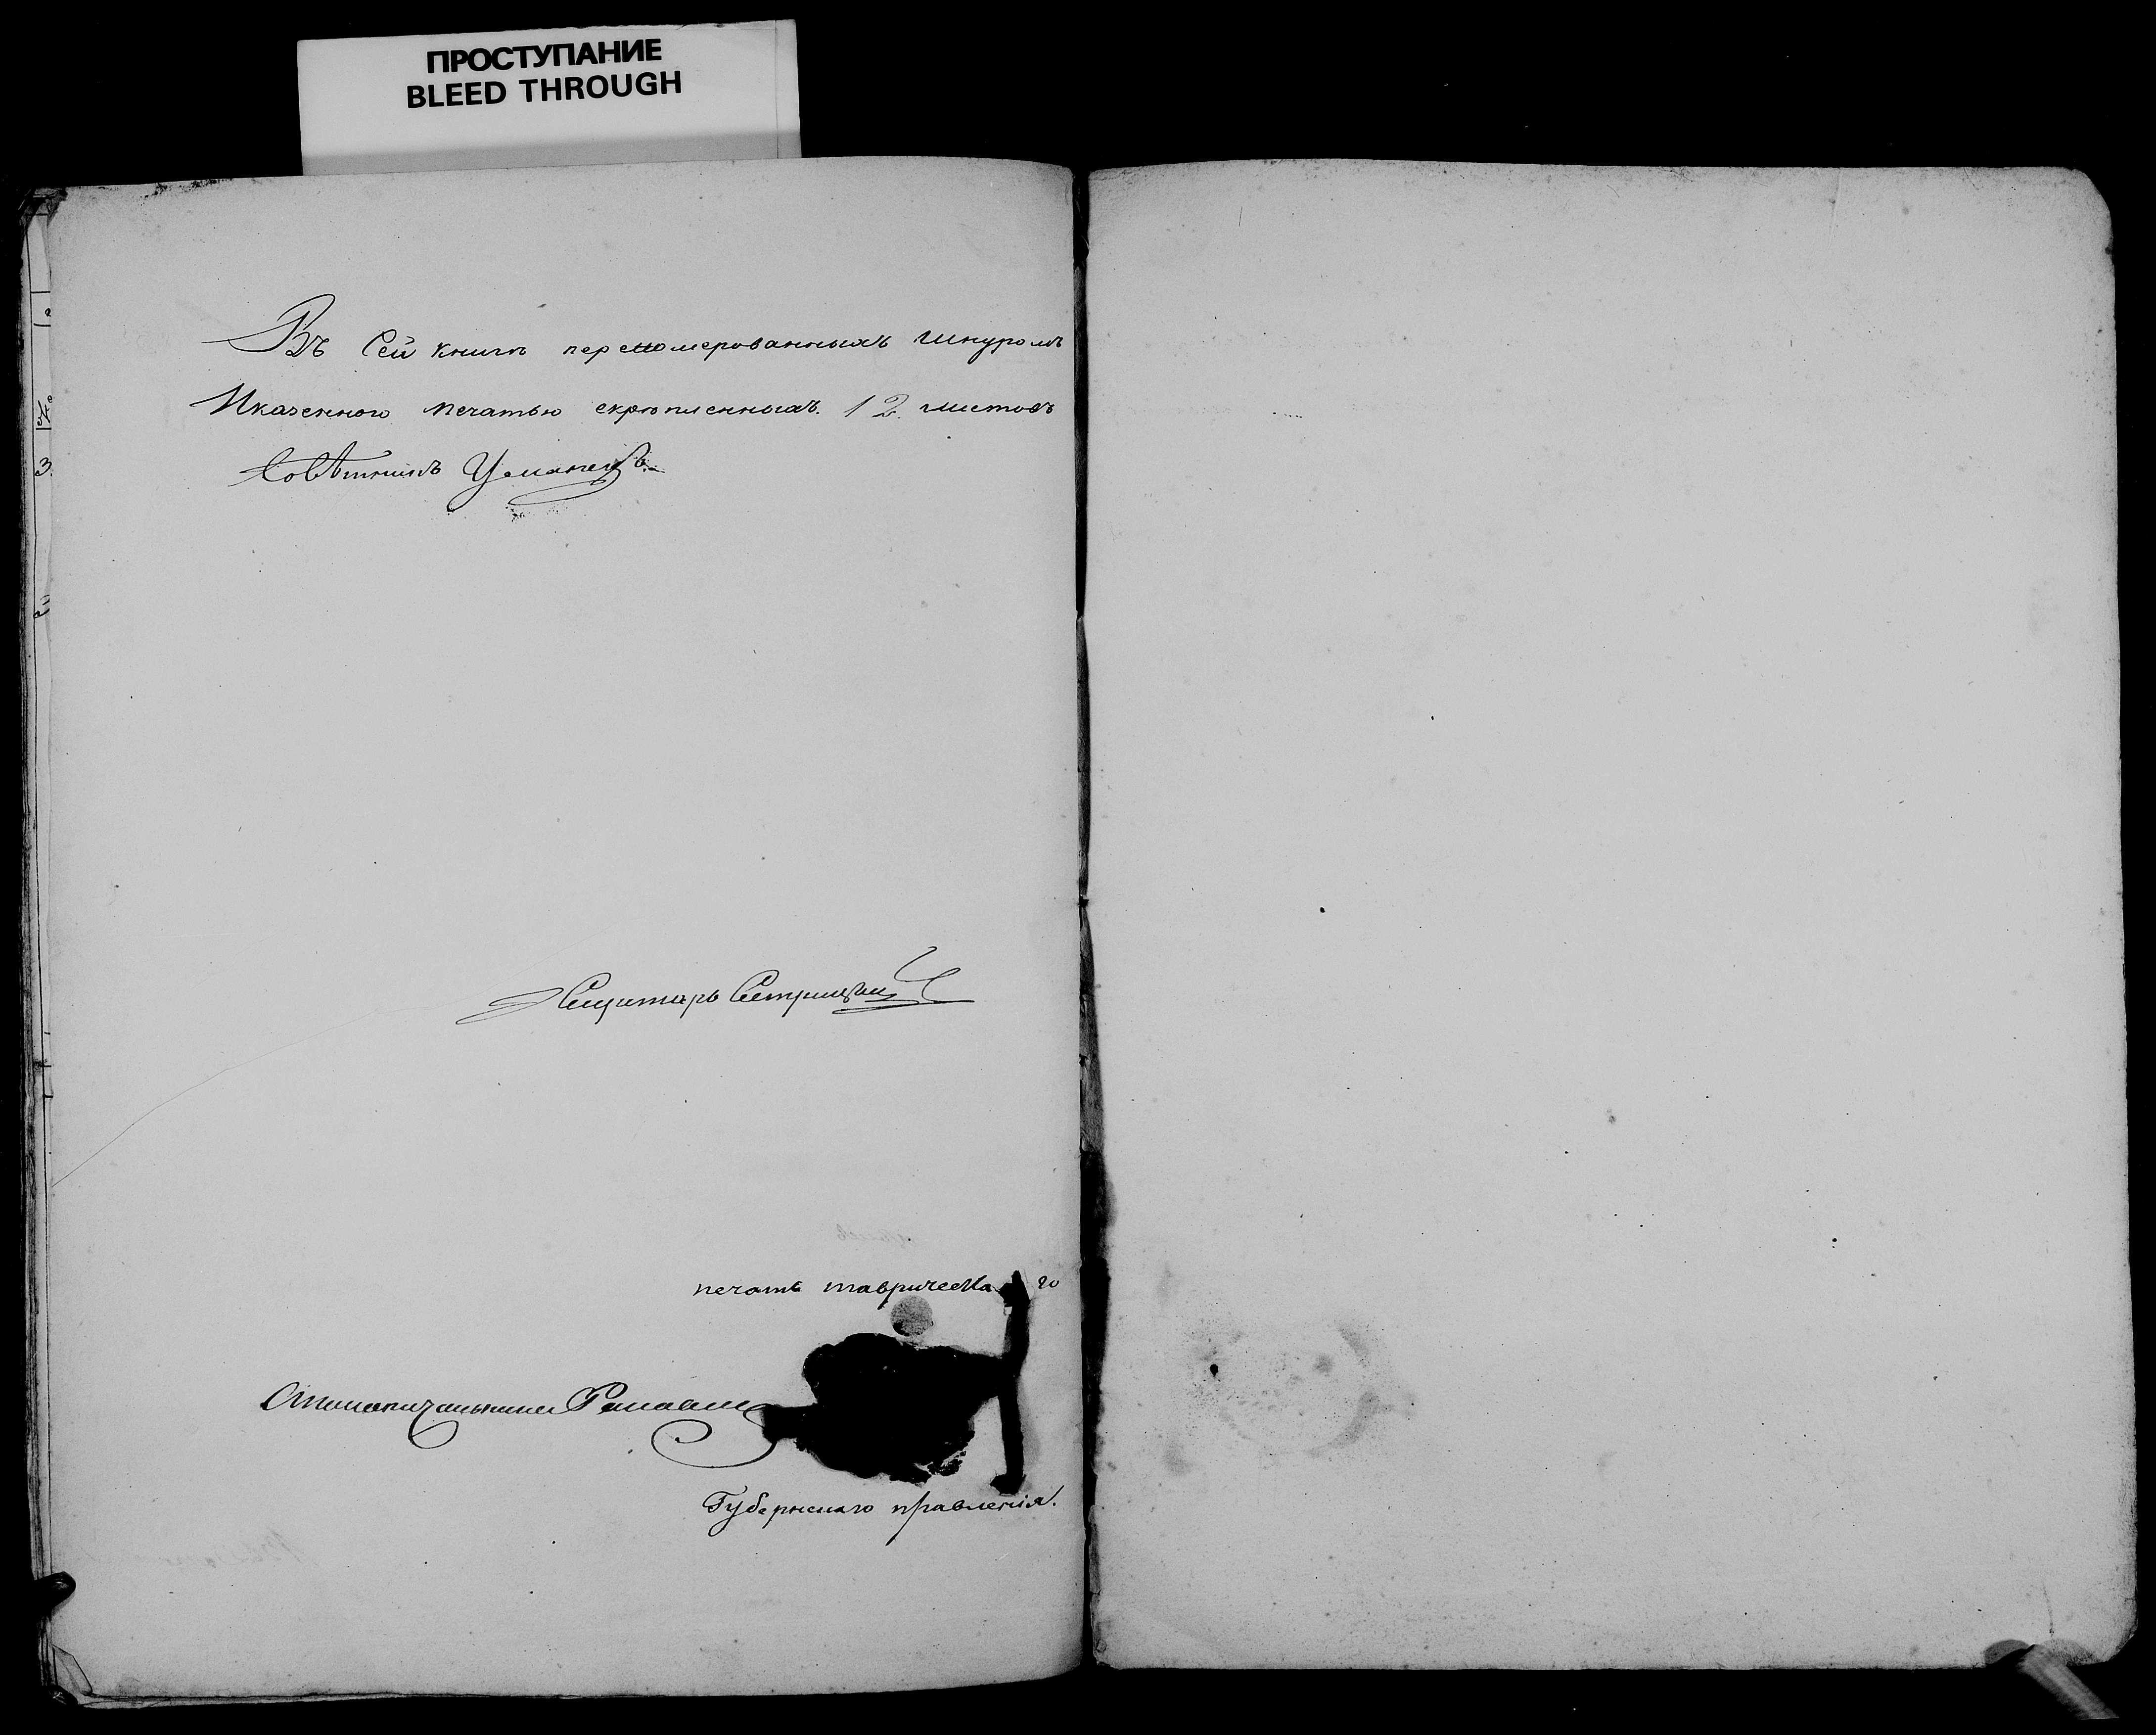 ПРОСТУПАНИЕ
BLEED THROUGH
Въ Сей книгѣ переномерованныхъ шнуромъ
Иказенною печатью скрѣпленныхъ. 12. листовъ
Совѣтникъ Уманецъ.
Секретарь
печать таврическа го
Столоначальникъ
Губернскаго правленія.